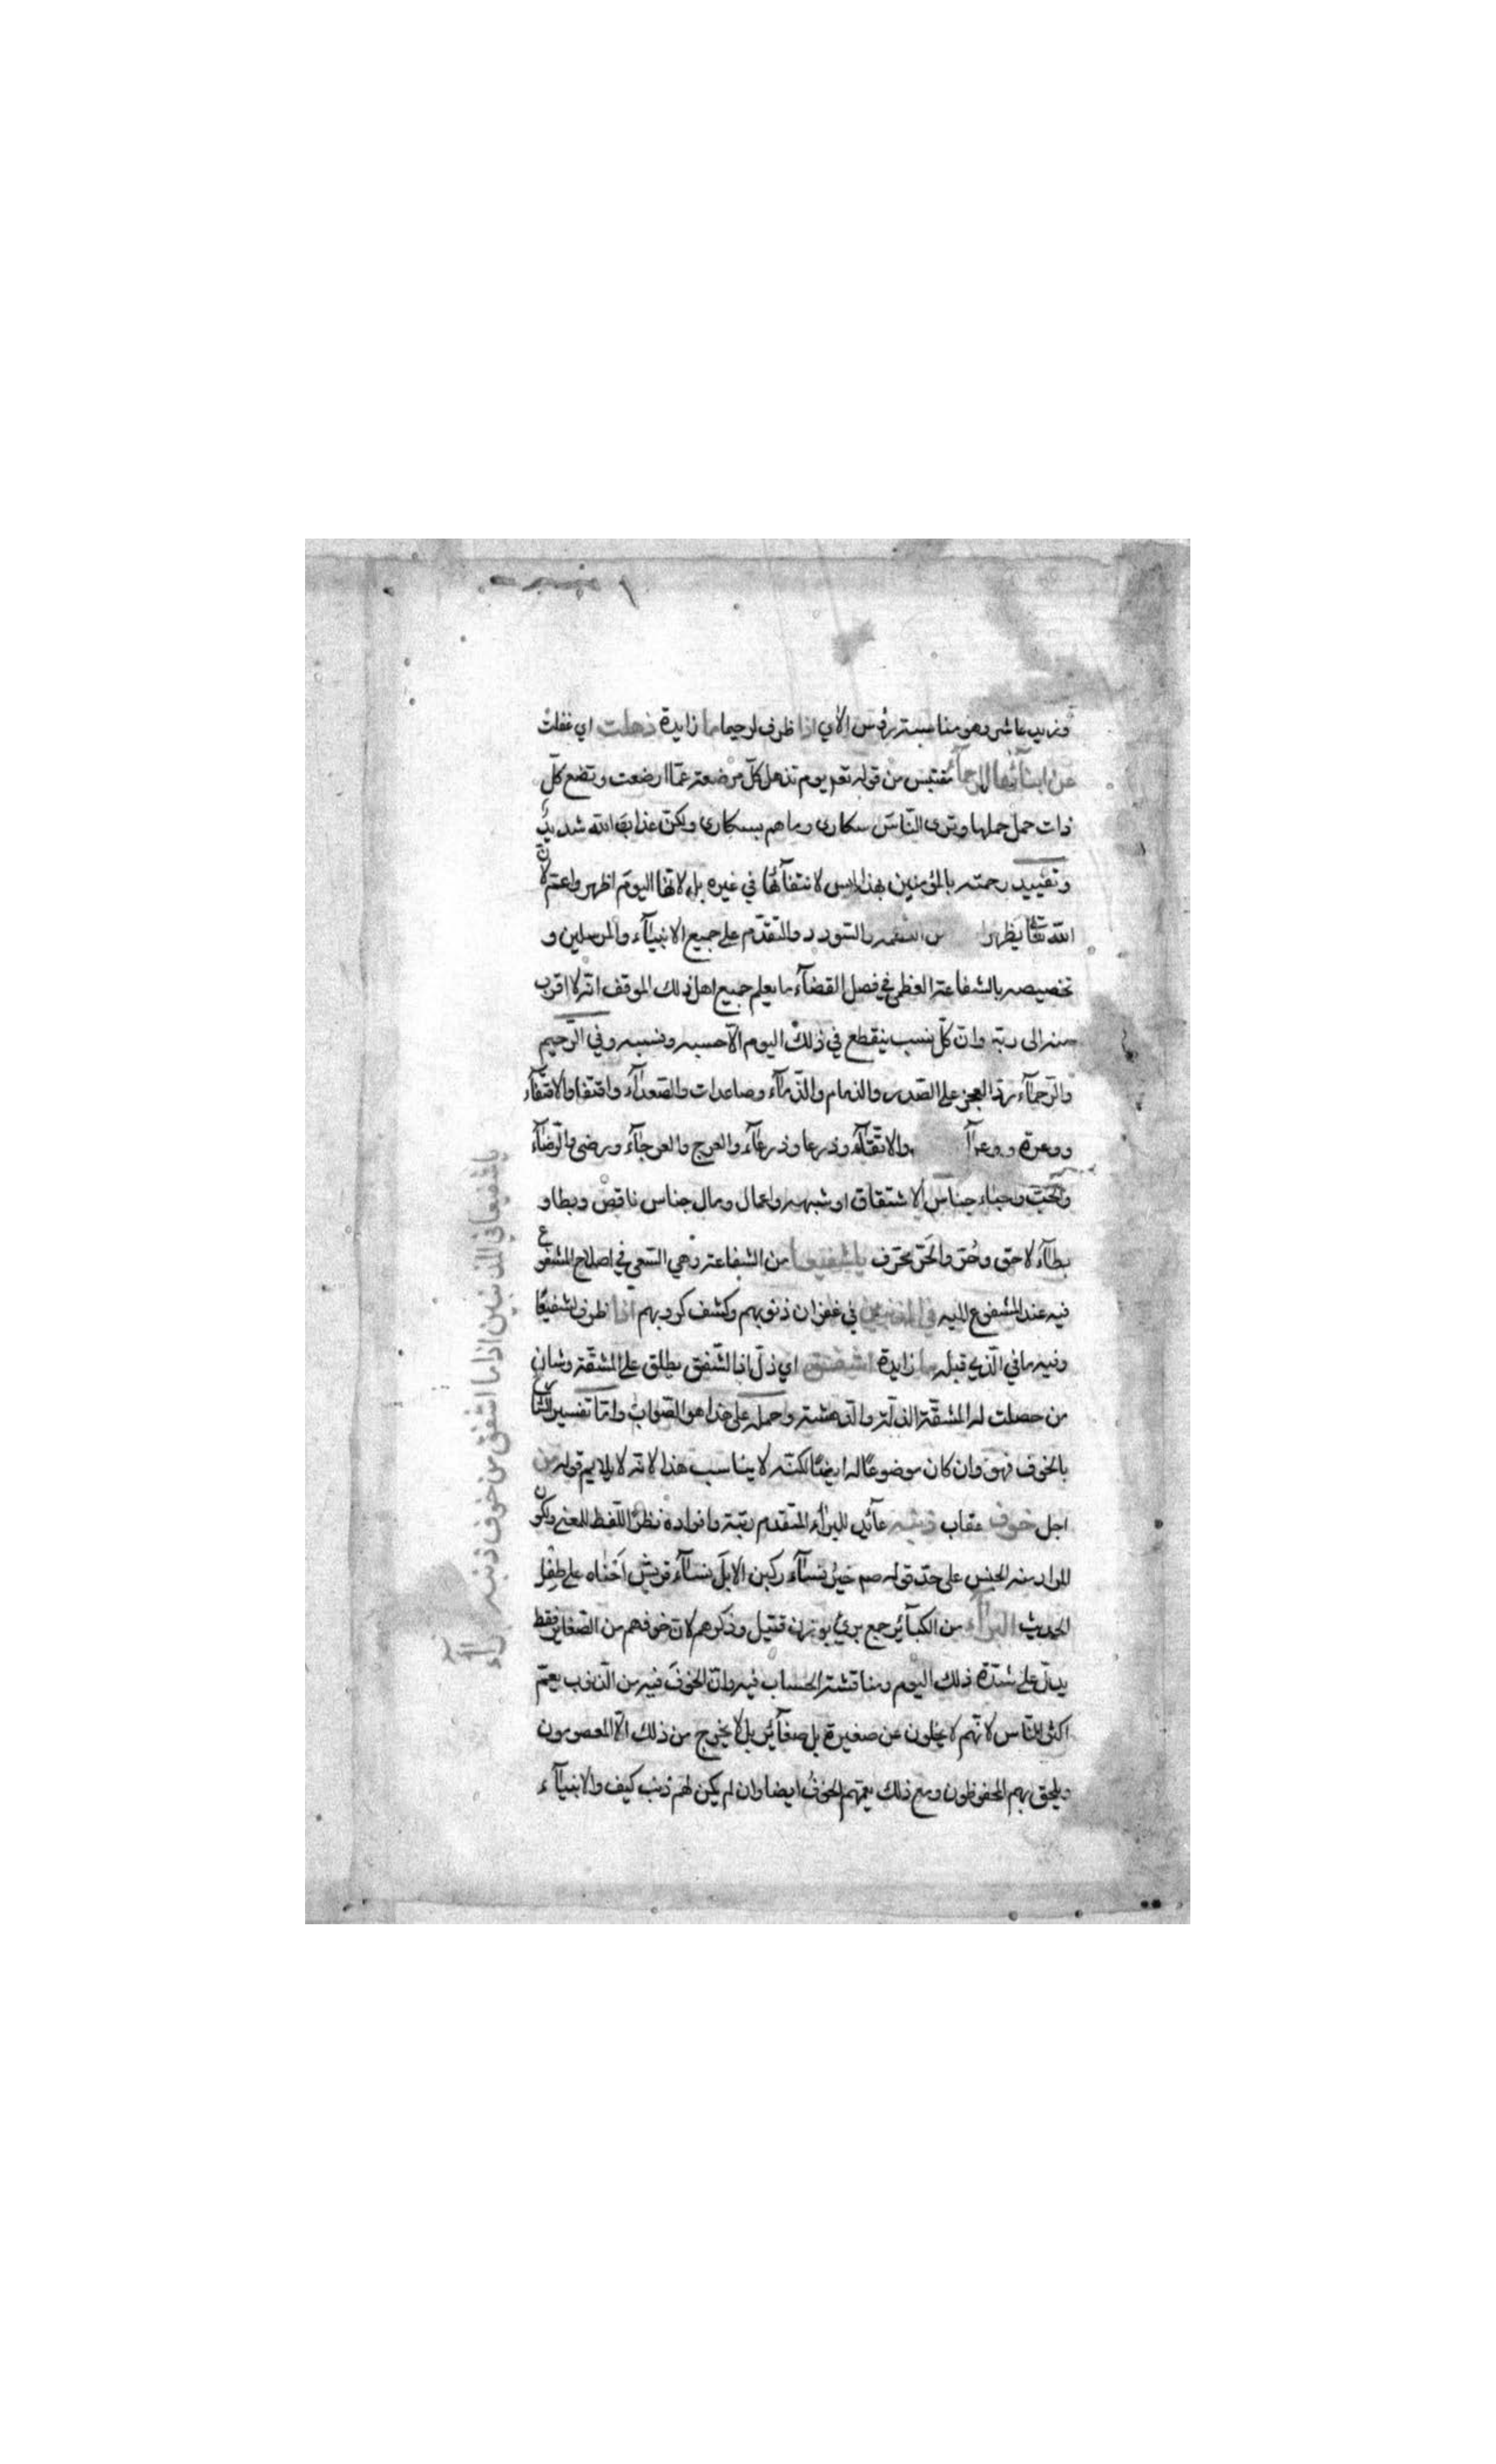 وهو مناسبة رؤس الآي اذا ظرف لرحيما ما زايدة ذهلت اي غفلت
عن ابنائها الرحمآء مقتبس من قوله تعم يوم تذهل كلّ مرضعة عمّا ارضعت وتضع كلّ
ذات حمل حملها وترى النّاس سكارى وما هم بسكارى ولكنّ عذاب الله شديد
وتقييد رحمته بالمؤمنين بهذا ليس لانتفآئها في غيره بل لانّها اليوم اظهر واعمّ لانّ
الله تعا يظهر والسّودد والتقدّم على جميع الانبيآء والمرسلين و
تخصيصه بالشفاعة العظمى في فصل القضآء ما يعلم جميع اهل ذلك الموقف انّه لا اقرب
منه الى ربّه وانّ كلّ نسب ينقطع في ذلك اليوم الّا حسبه ونسبه وفي الرّحيم
والرّحمآء ردّ العجز على الصّدر والذمام والذّمآء وصاعدات والصّعدآء واقتفا والاقتفآء
ووعرة ووعرآ والاتّقآء وذرعا وذرعآء والعرج والعرجآء ورضى والرّضآء
والحبّ وحباء جناس الاشتقاق او شبهه واعمال ومال جناس ناقص وبطا و
بطآء لاحق وحُقّ والحَقّ محرّف ياشفيعا من الشفاعة وهي السّعي في اصلاح المشفوع
فيه عند المشفوع اليه في المذنبين في غفران ذنوبهم وكشف كروبهم اذا ظرف لشفيعًا
وفيه ما في الّذي قبله ما زايدة اشفق اي ذلّ اذ الشّفق يطلق على المشقّة وشان
من حصلت له المشقّة الذلّة والدهشة وحمله على هذا هو الصّواب وامّا تفسير الشّارع
بالخوف فهو وان كان موضوعًا له ايضًا لكنّه لا يناسب هذا لانه لا يلايم قوله من
اجل خوف عقاب ذنبه عآئد للبرآء المتقدم رتبة وافراده نظرًا للّفظ للمعنى ولكون
المراد منه الجنس على حدّ قوله صم خيرُ نسآء ركبن الابلَ نسآءُ قريش اَحْناه على طِفْل
الحديث البرآء من الكبآئر جمع برئٍ بوزن قتيل وذكرهم لانّ خوفهم من الصّغاير فقط
يدلّ على شدّة ذلك اليوم ومناقشة الحساب فيه وانّ الخوفَ فيه من الذّنوب يعمّ
اكثر النّاس لانّهم لا يخلون عن صغيرة بل صغآئر بل لا يخرج من ذلك الّا المعصومون
ويلحق بهم المحفوظون ومع ذلك يعمّهم الخوفُ ايضا وان لم يكن لهم ذنب كيف والانبيآء
ياشفيعا في المذنبين اذا ما اشفق من خوف ذنبه البرآء